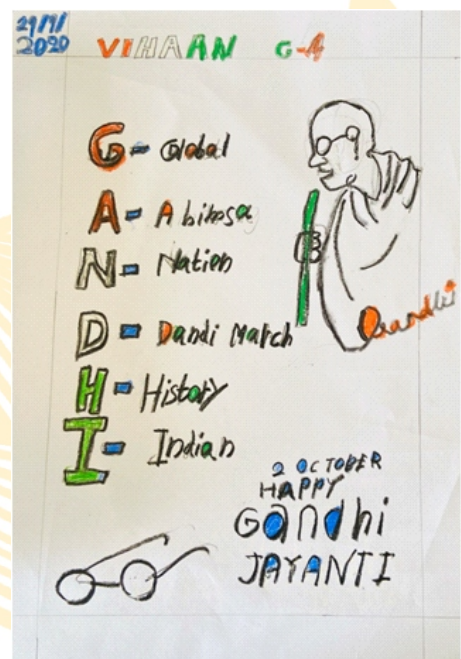 29/9/
2020
VIHAAN G-4
G - Global
A - Ahimsa
N - Nation
D - Dandi March
H - History
I - Indian
Gandhi
2 OCTOBER
HAPPY
Gandhi
JAYANTI